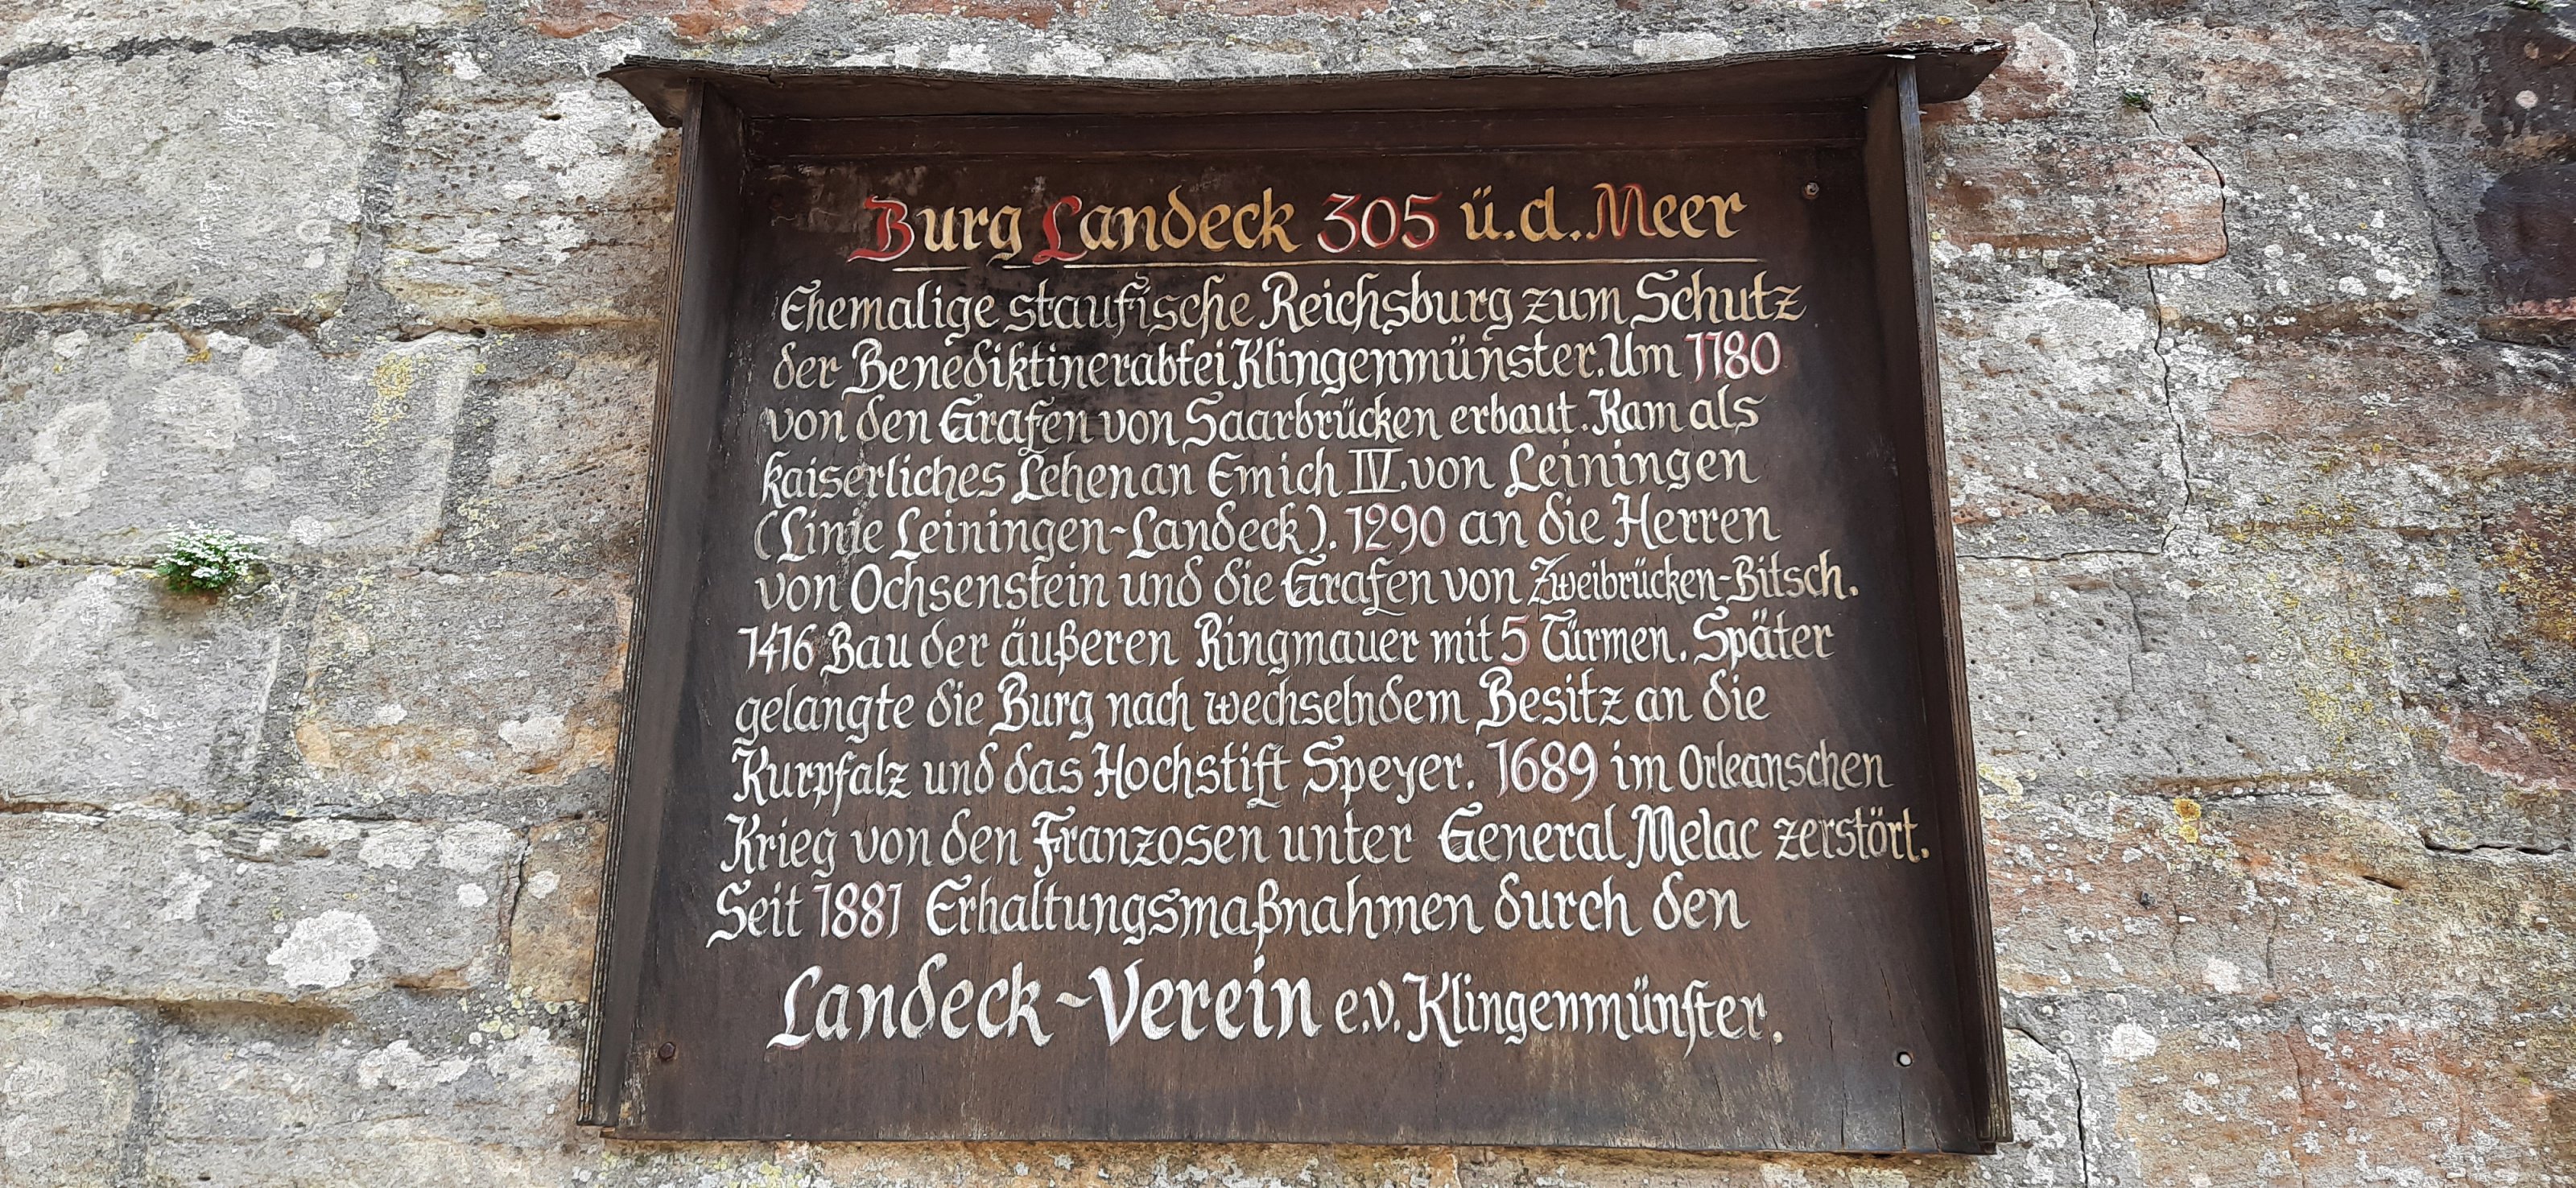 Burg Landeck 305 ü.d. Meer
Ehemalige staufische Reichsburg zum Schutz
der Benediktinerabtei Klingenmünster. Um 1180
von den Grafen von Saarbrücken erbaut. Kam als
kaiserliches Lehen an Emich IV. von Leiningen
(Linie Leiningen-Landeck). 1290 an die Herren
von Ochsenstein und die Grafen von Zweibrücken-Bitsch.
1416 Bau der äußeren Ringmauer mit 5 Türmen. Später
gelangte die Burg nach wechselndem Besitz an die
Kurpfalz und das Hochstift Speyer. 1689 im Orleanschen
Krieg von den Franzosen unter General Melac zerstört.
Seit 1881 Erhaltungsmaßnahmen durch den
Landeck-Verein e.V. Klingenmünster.